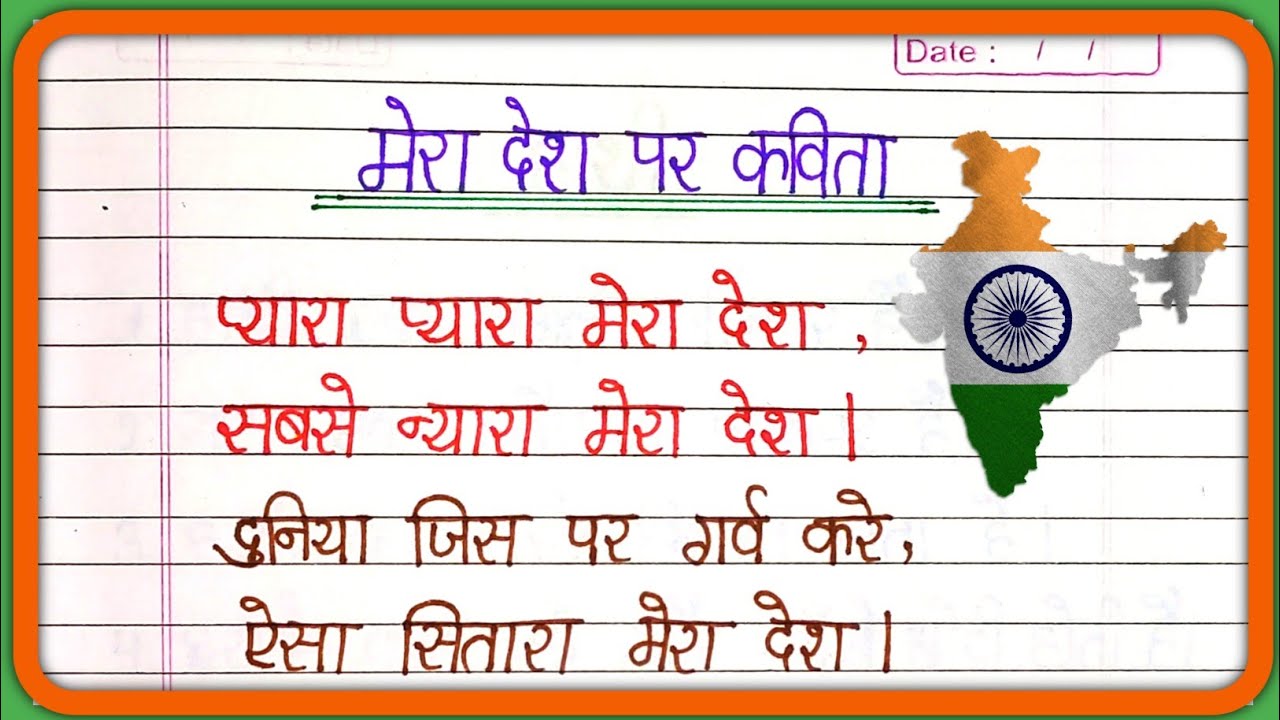 Date : / /
मेरा देश पर कविता
प्यारा प्यारा मेरा देश ,
सबसे न्यारा मेरा देश ।
दुनिया जिस पर गर्व करे,
ऐसा सितारा मेरा देश ।